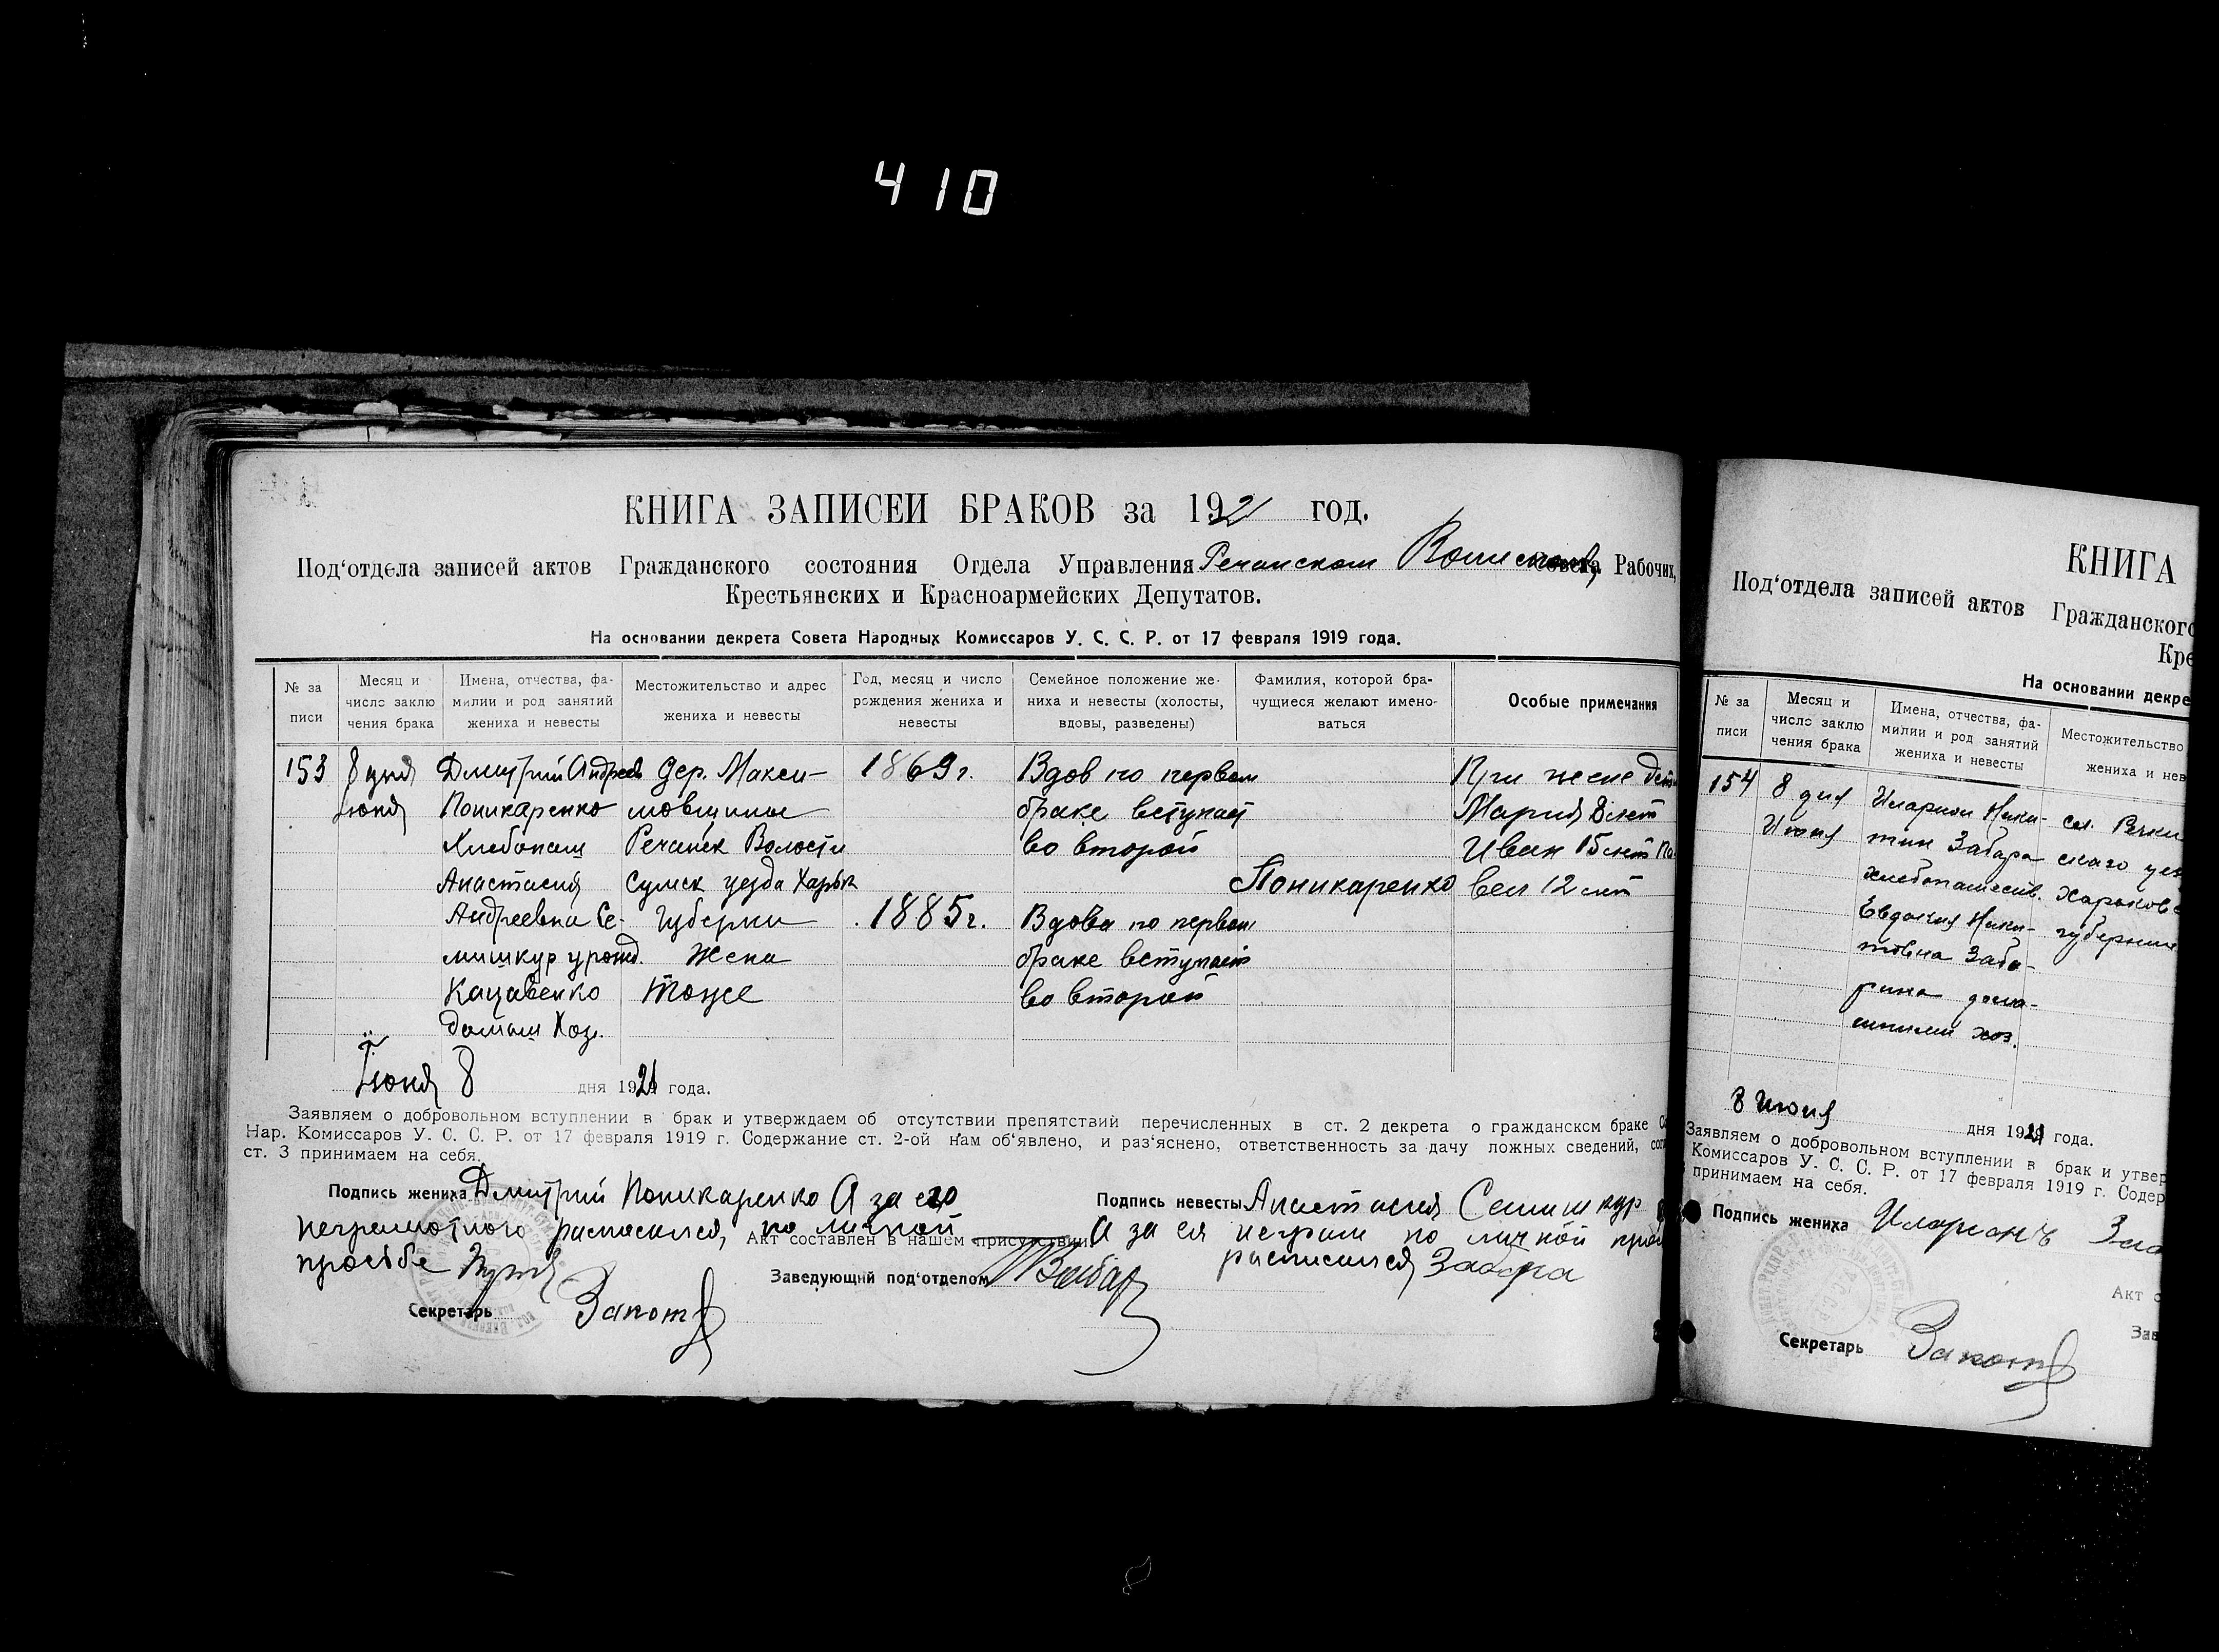 410
КНИГА ЗАПИСЕЙ БРАКОВ за 1921 год.
Под'отдела записей актов Гражданского состояния Отдела Управления Речанском Совета Рабочих,
Крестьянских и Красноармейских Депутатов.
На основании декрета Совета Народных Комиссаров У. С. С. Р. от 17 февраля 1919 года.
№ за писи
Месяц и число заклю чения брака
Имена, отчества, фа- милии и род занятий жениха и невесты
Местожительство и адрес жениха и невесты
Год, месяц и число рождения жениха и невесты
Семейное положение же- ниха и невесты (холосты, вдовы, разведены)
Фамилия, которой бра- чущиеся желают имено- ваться
Особые примечания
153 8 дня Дмитрий Андреев дер. Макси- 1869г. Вдов по первом При жене
Июня Поникаренко мовщины браке вступает Мария 8 лет
Хлебопаш Речанск Волости во второй Иван 15 лет Па-
Анастасия Сумск уезда Харьк Поникаренко вел 12 лет
Андреевна Се- Губерни 1885г. Вдова по первом
мишкур урожд. Жена браке вступает
Кацавенко тоже во второй
домаш Хоз.
Июня 8 дня 1921 года.
Заявляем о добровольном вступлении в брак и утверждаем об отсутствии препятствий перечисленных в ст. 2 декрета о гражданском браке
Нар. Комиссаров У. С. С. Р. от 17 февраля 1919 г. Содержание ст. 2-ой нам об'явлено, и раз'яснено, ответственность за дачу ложных сведений,
ст. 3 принимаем на себя.
Подпись жениха Дмитрий Поникаренко А за его
неграмотного расписался, по личной
просьбе
Подпись невесты Анастасия Семишкур
А за ея неграм по личной
расписался Забара
Акт составлен в нашем присутствии
Заведующий под'отделом
Секретарь
КНИГА
Под'отдела записей актов Гражданского
Кре
На основании декре
№ за писи
Месяц и число заклю чения брака
Имена, отчества, фа- милии и род занятий жениха и невесты
Местожительство жениха и нев
154 8 дня Иларион Ники- сел. Речки
Июня тин Забара скаго уез
хлебопашест. Харьков
Евдокия Ники- губернии
товна Заба-
рина дома-
шним хоз.
8 Июня дня 1921 года.
Заявляем о добровольном вступлении в брак и утвер
Комиссаров У. С. С. Р. от 17 февраля 1919 г. Содер
принимаем на себя.
Подпись жениха Иларионъ
Акт с
Зав
Секретарь